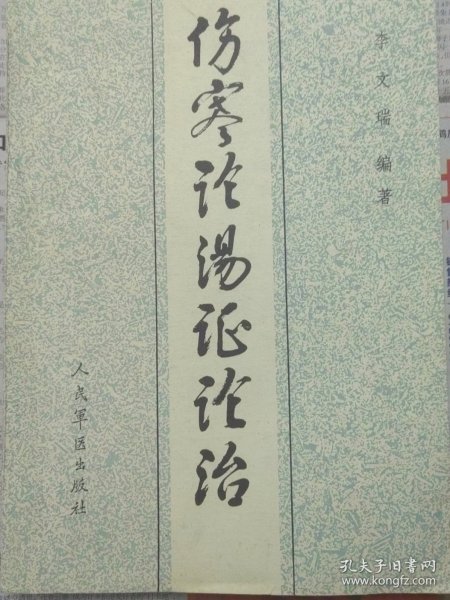 李文瑞编著
伤寒论汤证论治
人民軍医出版社
孔夫子旧书网
www.kongfz.com